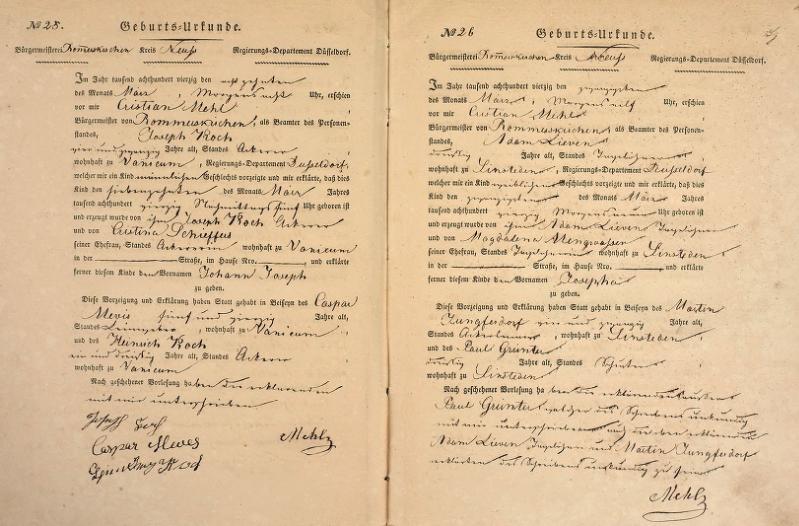 No 25.
Geburts-Urkunde.
Bürgermeisterei Rommerskirchen Kreis Neuss Regierungs-Departement Düsseldorf.
Im Jahr tausend achthundert vierzig den
des Monats März, Morgens Uhr, erschien
vor mir Cristian Mehl
Bürgermeister von Rommerskirchen, als Beamter des Personen-
standes, Joseph Koch
vier und zwanzig Jahre alt, Standes Ackerer
wohnhaft zu Vanicum, Regierungs-Departement Dusseldorf,
welcher mir ein Kind männlichen Geschlechts vorzeigte und mir erklärte, daß dies
Kind den siebenzehnten des Monats März Jahres
tausend achthundert vierzig Nachmittags fünf Uhr geboren ist
und erzeugt wurde von ihm Joseph Koch Ackerer
und von Cristina Schieffer
seiner Ehefrau, Standes Ackererin wohnhaft zu Vanicum
in der Straße, im Hause Nro. und erklärte
ferner diesem Kinde den Vornamen Johann Joseph
zu geben.
Diese Vorzeigung und Erklärung haben Statt gehabt in Beiseyn des Caspar
Mevis fünf und vierzig Jahre alt,
Standes, wohnhaft zu Vanicum
und des Heinrich Koch
ein und dreißig Jahre alt, Standes Ackerer
wohnhaft zu Vanicum
Nach geschehener Vorlesung haben die erklärenden
mit mir unterschrieben
Joseph Koch
Caspar Meves
Mehl
No 26
Geburts-Urkunde.
Bürgermeisterei Rommerskirchen Kreis Neuss Regierungs-Departement Düsseldorf.
Im Jahr tausend achthundert vierzig den
des Monats März, Morgens elf Uhr, erschien
vor mir Cristian Mehl
Bürgermeister von Rommerskirchen, als Beamter des Personen-
standes, Adam Lieven
dreißig Jahre alt, Standes Tagelöhner
wohnhaft zu Sinsteden, Regierungs-Departement Dusseldorf
welcher mir ein Kind weiblichen Geschlechts vorzeigte und mir erklärte, daß dies
Kind den des Monats März Jahres
tausend achthundert vierzig Morgens neun Uhr geboren ist
und erzeugt wurde von ihm Adam Lieven Tagelöhner
und von Magdalena Mengwasser
seiner Ehefrau, Standes Tagelöhnerin wohnhaft zu Sinsteden
in der Straße, im Hause Nro. und erklärte
ferner diesem Kinde den Vornamen Josepha
zu geben.
Diese Vorzeigung und Erklärung haben Statt gehabt in Beiseyn des Martin
Jungferdorf vier und zwanzig Jahre alt,
Standes, wohnhaft zu Sinsteden
und des Paul Grünter
dreißig Jahre alt, Standes Schuster
wohnhaft zu Sinsteden
Nach geschehener Vorlesung haben die erklärenden
Paul Grünter welcher des Schreibens unkundig
mit mir unterschrieben
Adam Lieven Tagelöhner und Martin Jungferdorf
erklärten des Schreibens unkundig zu sein
Mehl